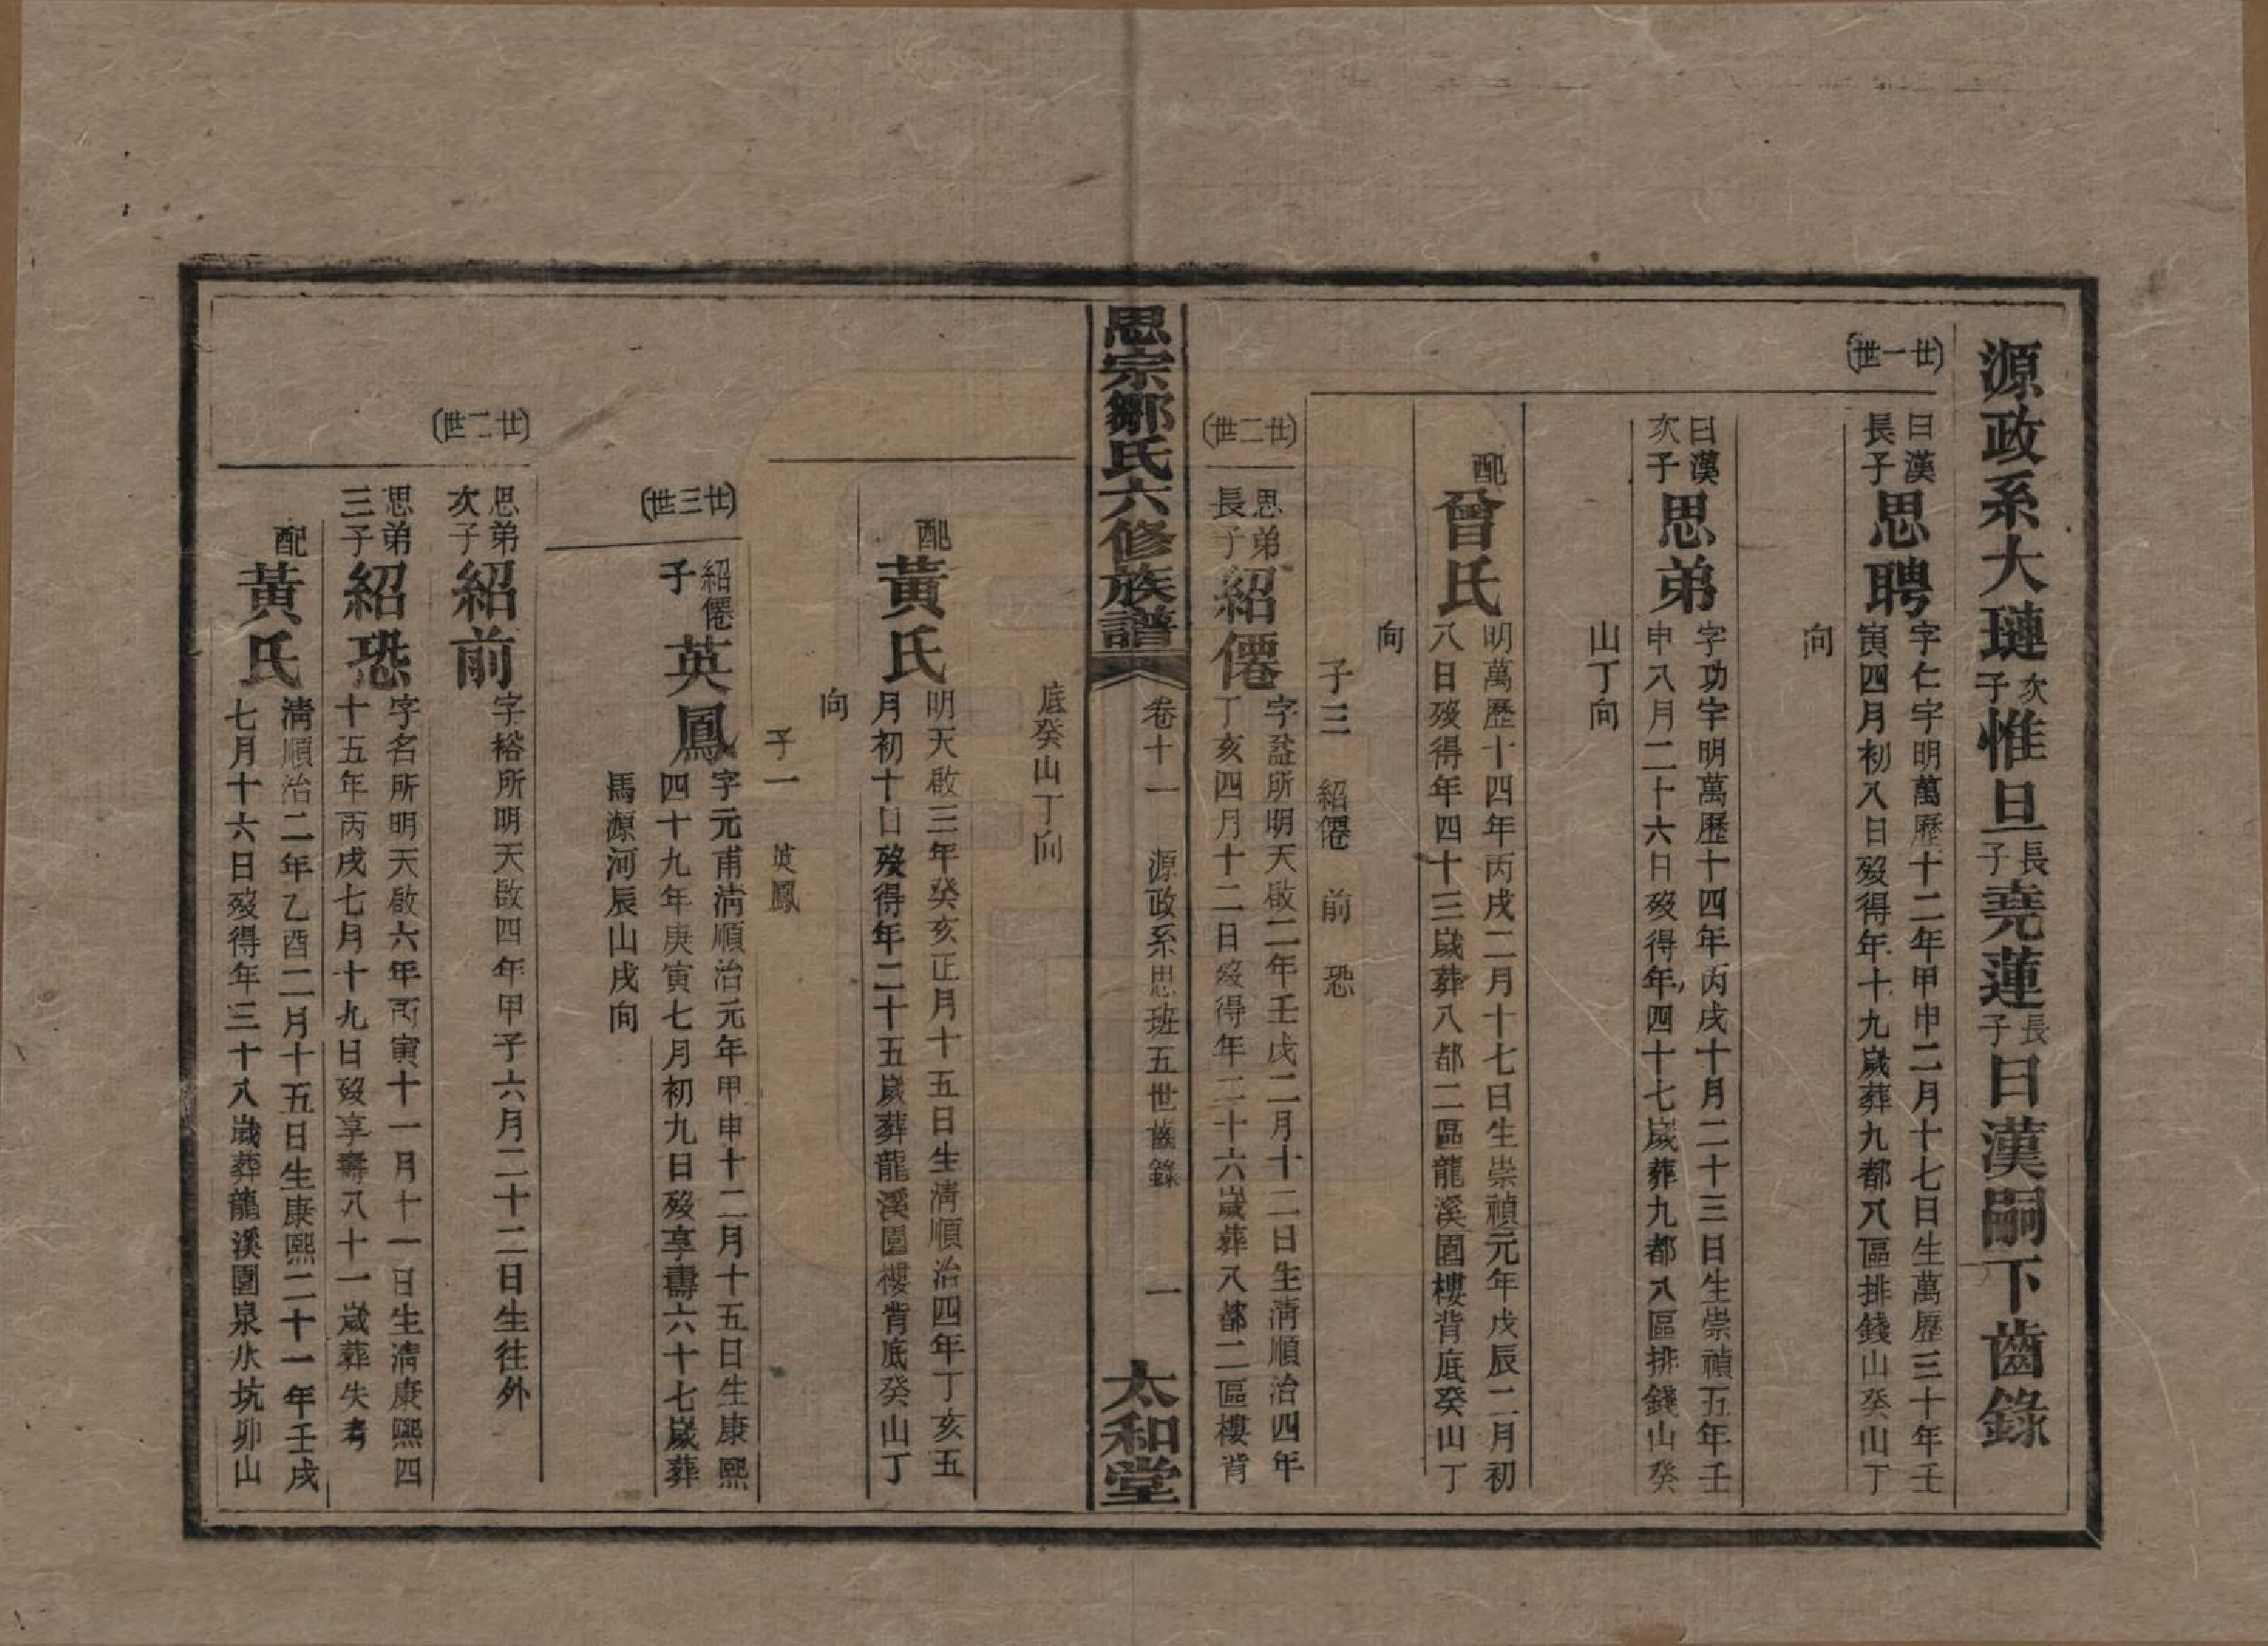 源政系大璉次子惟旦長子堯蓮長子日漢嗣下齒錄
(廿一世)
日漢長子
思聘
字仁宇明萬歷十二年甲申二月十七日生萬歷三十年壬
寅四月初八日歿得年十九歲葬九都八區排錢山癸山丁
向
日漢次子
思弟
字功宇明萬歷十四年丙戌十月二十三日生崇禎五年壬
申八月二十六日歿得年四十七歲葬九都八區排錢山癸
山丁向
配
曾氏
明萬歷十四年丙戌二月十七日生崇禎元年戊辰二月初
八日歿得年四十三歲葬八都二區龍溪園樓背底癸山丁
向
子三 紹僊 前 恐
(廿二世)
思弟長子
紹僊
字益所明天啟二年壬戌二月十二日生清順治四年
丁亥四月十二日歿得年二十六歲葬八都二區樓背
思宗鄒氏六修族譜
卷十一 源政系思班五世齒錄 一
太和堂
底癸山丁向
配
黃氏
明天啟三年癸亥正月十五日生清順治四年丁亥五
月初十日歿得年二十五歲葬龍溪園樓背底癸山丁
向
子一 英鳳
(廿三世)
紹僊子
英鳳
字元甫清順治元年甲申十二月十五日生康熙
四十九年庚寅七月初九日歿享壽六十七歲葬
馬源河辰山戌向
(廿二世)
思弟次子
紹前
字裕所明天啟四年甲子六月二十二日生往外
思弟三子
紹恐
字名所明天啟六年丙寅十一月十一日生清康熙四
十五年丙戌七月十九日歿享壽八十一歲葬失考
配
黃氏
清順治二年乙酉二月十五日生康熙二十一年壬戌
七月十六日歿得年三十八歲葬龍溪園泉水坑卯山